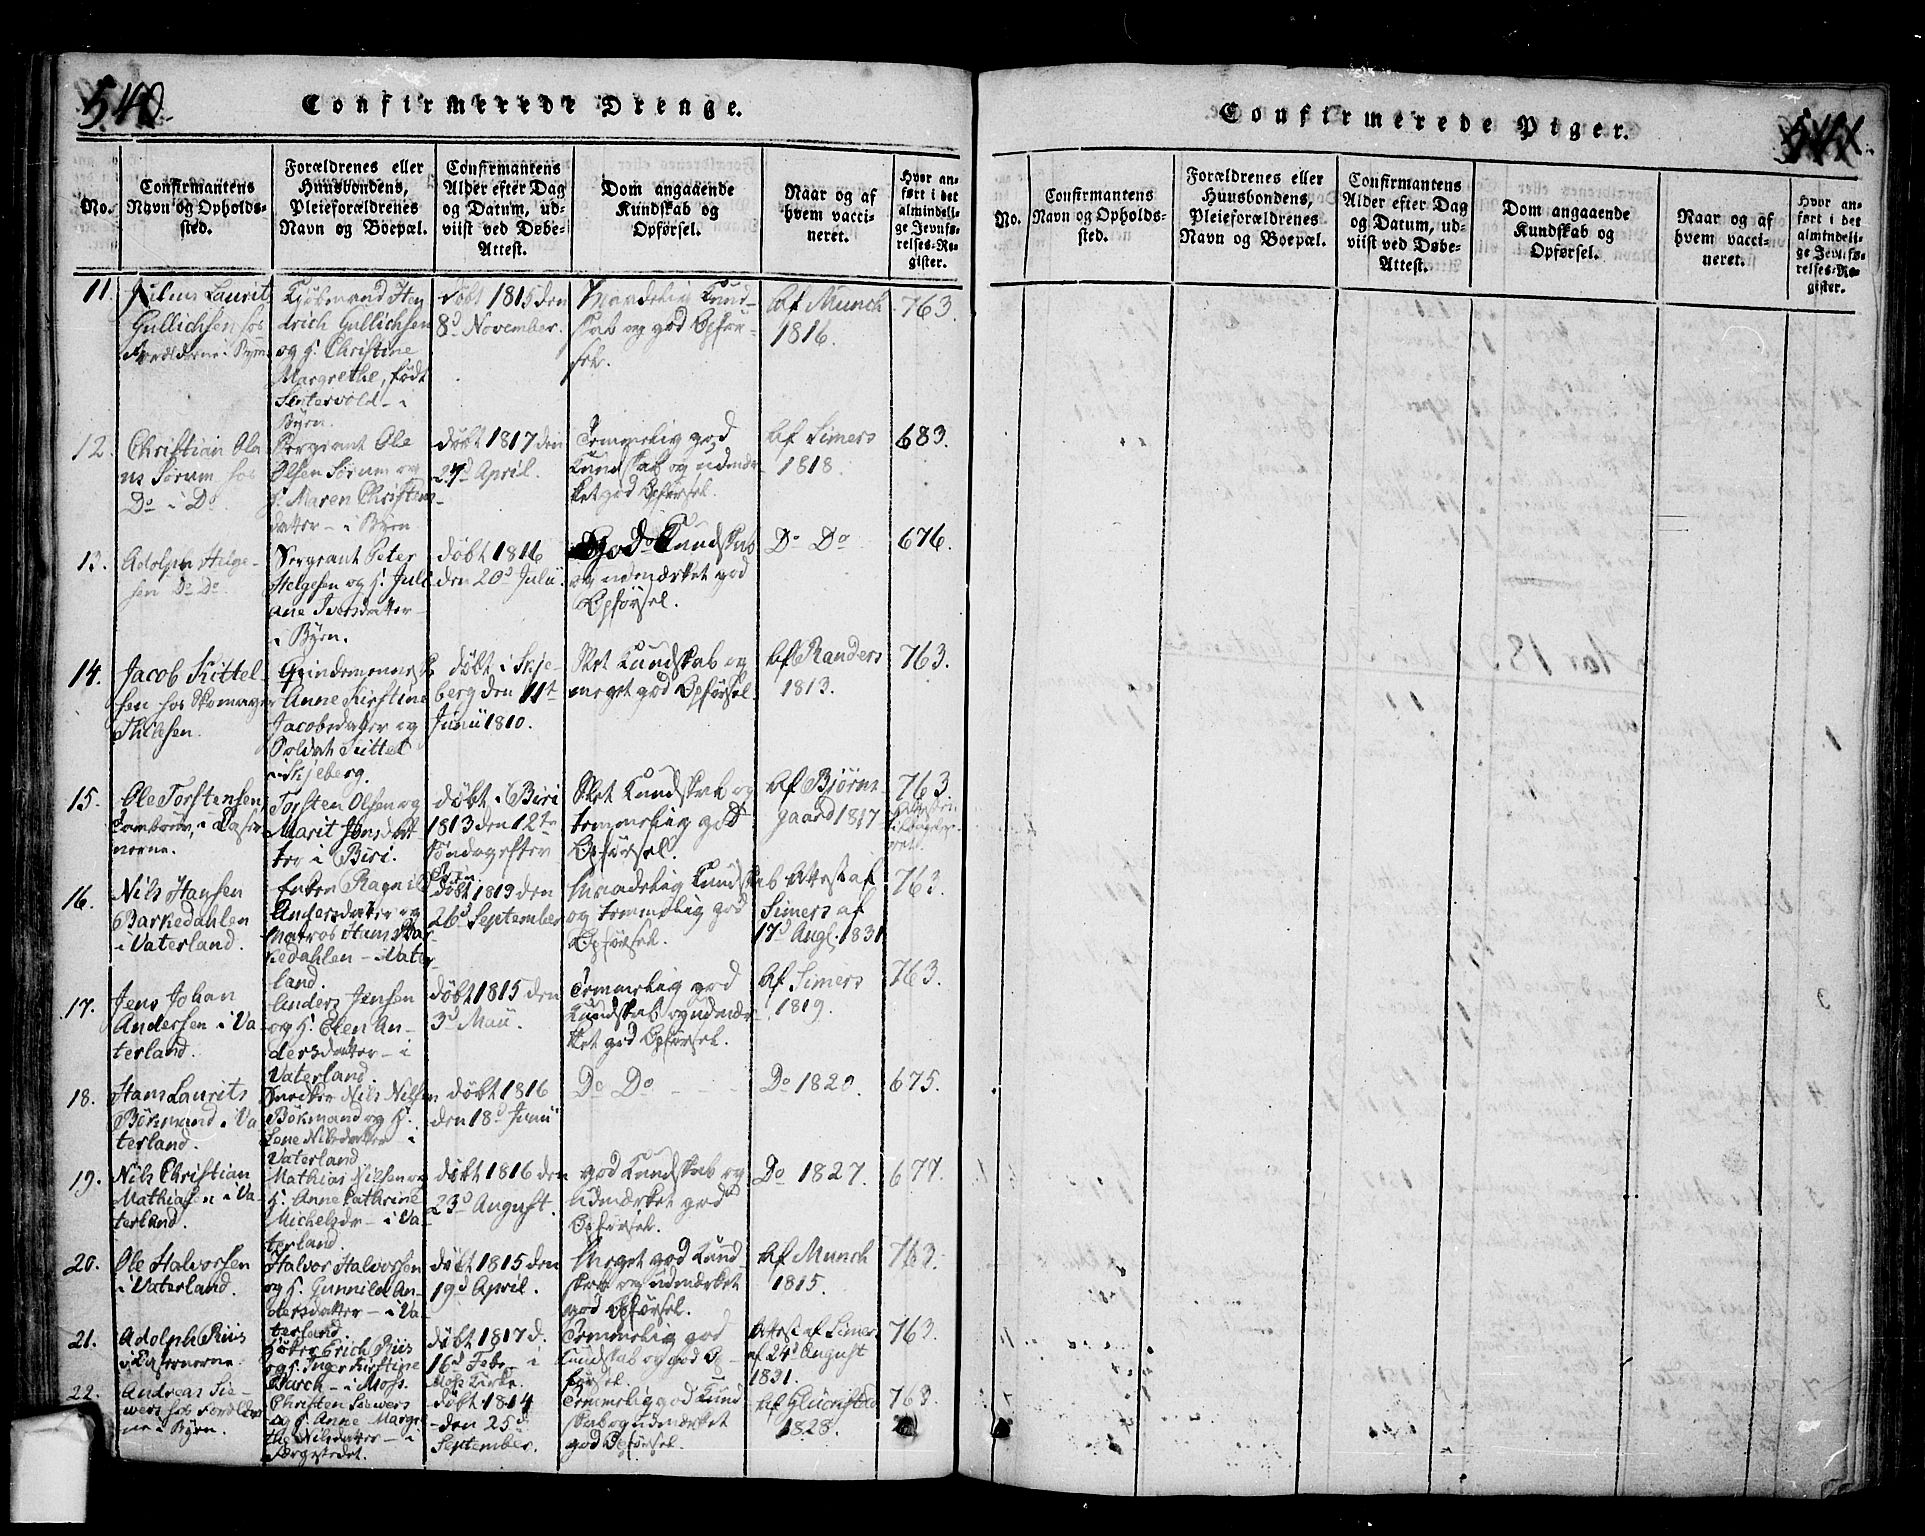 540
Confirmerede Drenge.
No.
Confirmantens
Navn og Opholds-
sted.
Forældrenes eller
Huusbondens,
Pleieforældrenes
Navn og Boepæl.
Confirmantens
Alder efter Dag
og Datum, ud-
viist ved Døbe-
Attest.
Dom angaaende
Kundskab og
Opførsel.
Naar og af
hvem vacci-
neret.
Hvor an-
ført i det
almindeli-
ge Jevnfø-
relses-Re-
gister.
11.
Laurits
Gullichsen hos
Forældrene i Byen
Kjøbmand Hen
drich Gullichsen
og H. Christine
Margrethe, født
i
Byen.
døbt 1815 den
8d November.
Maadelig Kund-
skab og god Opfør-
sel.
Af Munch
1816.
763.
12.
Christian Ola
us Sørum hos
Do i Do
Sergeant Ole
Olsen Sørum og
H. Maren Christens
datter - i Byen
døbt 1817 den
27d April.
Temmelig god
Kundskab og udmær-
ket god Opførsel.
Af Simers
1818.
683.
13.
Adolph Helge-
sen Do Do.
Sergeant Peter
Helgesen og H. Juli
ane Iversdatter -
i Byen.
døbt 1816
den 20d Julii.
God Kundskab
og udmærket god
Opførsel.
Do Do
676.
14.
Jacob Kittel
sen hos Skomager
Thilesen.
Qvindemenneske
Anne Kirstine
Jacobsdatter og
Soldat Kittel
i Skjeberg.
døbt i Skje
berg den 11te
Junii 1810.
Slet Kundskab og
meget god Opførsel
Af Randers
1813.
763.
15.
Ole Torstensen,
Tambour, i Caser
nerne.
Torsten Olsen og
Marit Jensdat
ter i Biri.
døbt i Biri
1813 den 12te
Søndag efter
Slet Kundskab og
temmelig god
Opførsel.
Af Bjørns-
gaard 1817
763.
16.
Nils Hansen
Barkedahlen
i Vaterland.
Enken Ragnild
Andersdatter og
Matros Hans Bar-
kedahlen - i Vater
land.
døbt 1813 den
26d September
Maadelig Kundskab
og temmelig god
Opførsel.
Attest af
Simers af
17d Augl. 1831
763.
17.
Jens Johan
Andersen i Va
terland.
Anders Jensen
og H. Elen An-
dersdatter - i
Vaterland.
døbt 1815 den
3d Maii.
Temmelig god
Kundskab og udmær-
ket god Opførsel.
Af Simers
1819.
763.
18.
Hans Laurits
Bökmand i Va
terland.
Snedker Nils Nilsen
Bökmand og H.
Lene Nilsdatter i
Vaterland
døbt 1816
den 18d Junii
Do Do
Do 1820.
675.
19.
Nils Christian
Mathiasen i Va-
terland.
Mathias Nilsen og
H. Anne Cathrine
Michelsdr - i Va
terland
døbt 1816 den
23d August.
god Kundskab og
udmærket god
Opførsel.
Do 1827.
677.
20.
Ole Halvorsen
i Vaterland.
Halvor Halvorsen
og H. Gunnild An-
dersdatter - i Va
terland
døbt 1815 den
19d April.
Meget god Kund-
skab og udmærket
god Opførsel.
Af Munch
1815.
763.
21.
Adolph Riis
i Casernerne.
Erich Riis
og H. Inger Kirstine
Burch - i Moss.
døbt 1817 d.
16d Febr - i
Moss Kirke.
Temmelig god
Kundskab og god Op-
førsel.
Attest af Simers
af 24d August
1831.
763.
22.
Andreas Sie-
wers hos Forældre
ne i Byen.
Christen Siewers
og H. Anne Margre
the Nilsdatter - i
Færgestedet.
døbt 1814
den 25d
September.
Temmelig god Kund
skab og udmærket
god Opførsel.
Af Gluckstad
1828.
763.
Confirmerede Piger.
541
No.
Confirmantens
Navn og Opholds-
sted.
Forældrenes eller
Huusbondens,
Pleieforældrenes
Navn og Boepæl.
Confirmantens
Alder efter Dag
og Datum, ud-
viist ved Døbe-
Attest.
Dom angaaende
Kundskab og
Opførsel.
Naar og af
hvem vacci-
neret.
Hvor an-
ført i det
almindeli-
ge Jevnfø-
relses-Re-
gister.